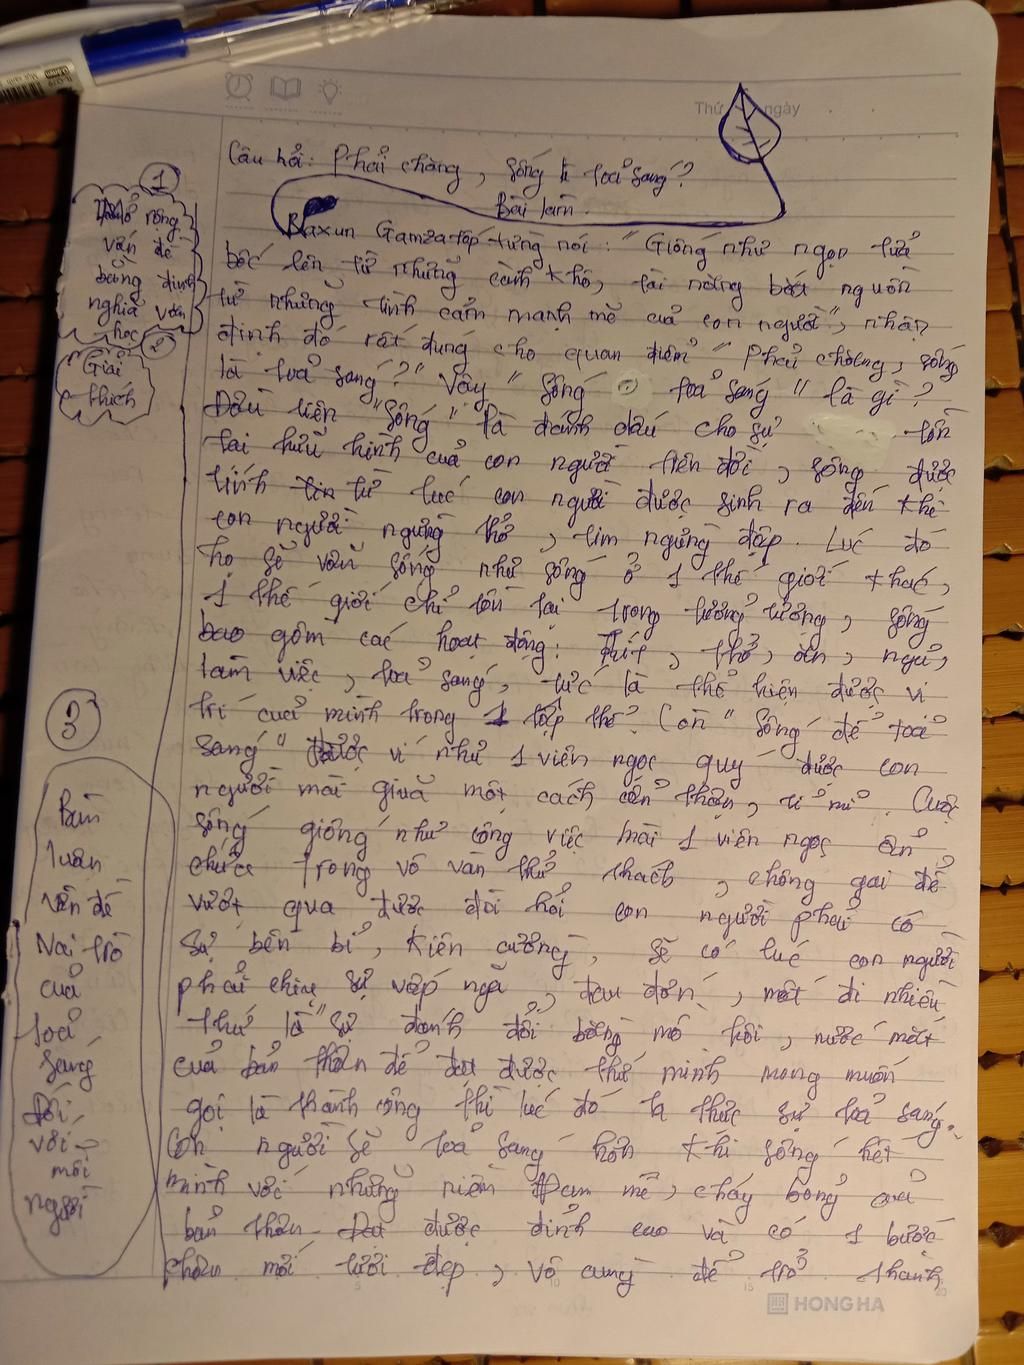 Thứ ngày
Câu hỏi: Phải chăng, sống là toả sáng?
Bài làm.
1
Mở rộng
vấn đề
bằng định
nghĩa văn
học
2
Giải
thích
Raxun Gamzatốp từng nói: "Giống như ngọn lửa
bốc lên từ những cành khô, tài năng bắt nguồn
từ những tình cảm mạnh mẽ của con người", nhận
định đó rất đúng cho quan điểm "Phải chăng, sống
là toả sáng?" Vậy "sống toả sáng" là gì?
Đầu tiên "sống" là đánh dấu cho sự tồn
tại hữu hình của con người trên đời, sống được
tính từ lúc con người được sinh ra đến khi
con người ngừng thở, tim ngừng đập. Lúc đó
họ sẽ vẫn sống như sống ở 1 thế giới khác,
1 thế giới chỉ tồn tại trong tưởng tượng, sống
bao gồm các hoạt động: hít, thở, ăn, ngủ,
làm việc, toả sáng, tức là thể hiện được vị
trí của mình trong 1 tập thể. Còn "sống để toả
sáng" được ví như 1 viên ngọc quý được con
người mài giũa một cách cẩn thận, tỉ mỉ. Cuộc
sống giống như công việc mài 1 viên ngọc ẩn
chứa trong vô vàn thử thách, chông gai để
vượt qua được đòi hỏi con người phải có
sự bền bỉ, kiên cường, sẽ có lúc con người
phải chịu sự vấp ngã, đau đớn, mất đi nhiều
thứ là "sự đánh đổi bằng mồ hôi, nước mắt
của bản thân để đạt được thứ mình mong muốn
gọi là thành công thì lúc đó ta thực sự toả sáng.
Con người sẽ toả sáng hơn khi sống hết
mình với những niềm đam mê, cháy bỏng của
bản thân. Đạt được đỉnh cao và có 1 bước
chân mới tươi đẹp, vô cùng để trở thành
3
Bàn
luận
vấn đề
Vai trò
của
toả
sáng
Đối
với
mỗi
người
HONG HA